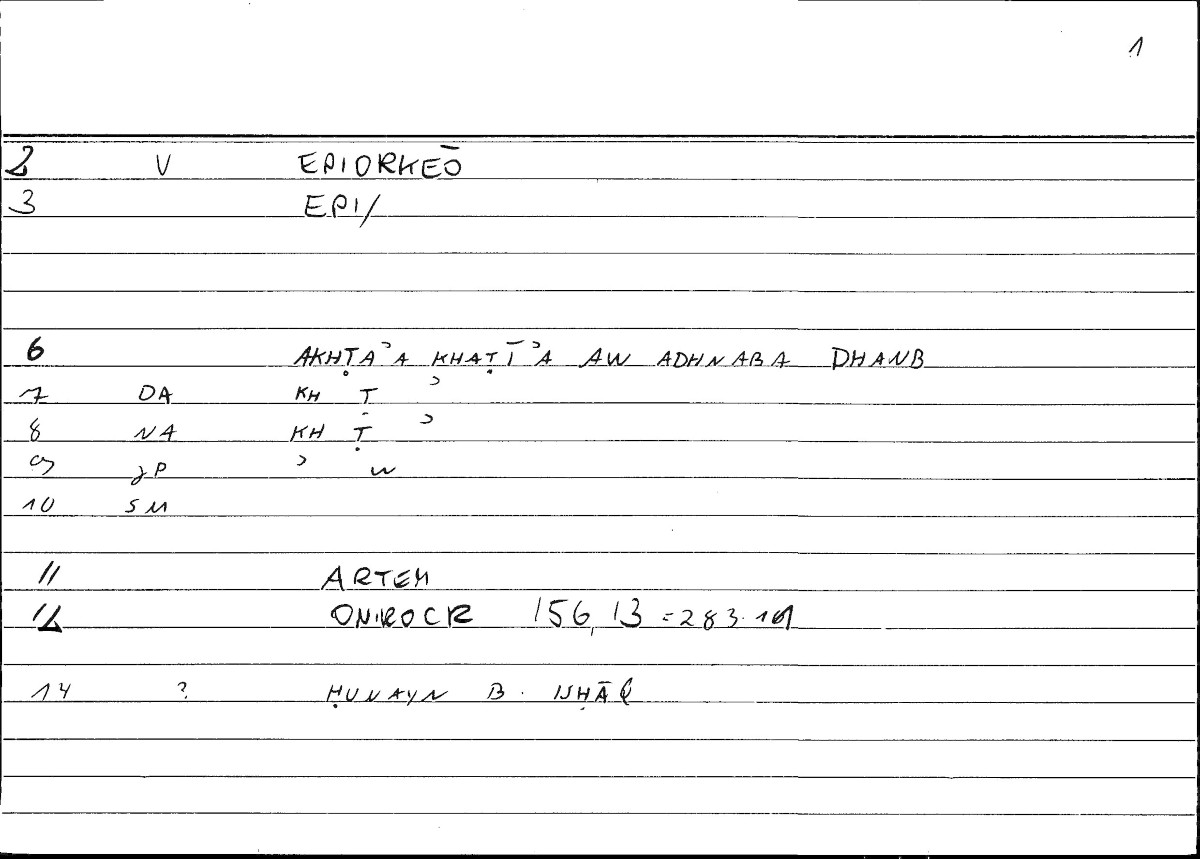 1
2 V EPIORKEŌ
3 EPI/
6 AKHṬAʾA KHAṬĪʾA AW ADHNABA DHANB
7 DA KH Ṭ ʾ
8 NA KH Ṭ ʾ
9 JP ʾ W
10 SM
11 ARTEM
12 ONIROCR 156,13 = 283.
14 ? ḤUNAYN B. ISḤĀQ